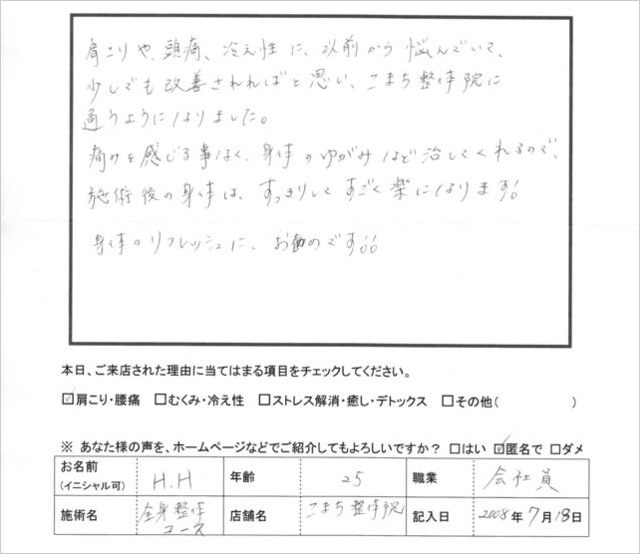 肩こりや、頭痛、冷え性に、以前から悩んでいて、
少しでも改善されればと思い、こまち整体院に
通うようになりました。
痛みを感じる事なく、身体のゆがみなど治してくれるので、
施術後の身体は、すっきりしてすごく楽になります!
身体のリフレッシュに、お勧めです!!
本日、ご来店された理由に当てはまる項目をチェックしてください。
☑肩こり・腰痛 □むくみ・冷え性 □ストレス解消・癒し・デトックス □その他( )
※ あなた様の声を、ホームページなどでご紹介してもよろしいですか? □はい ☑匿名で □ダメ
お名前 (イニシャル可) H.H 年齢 25 職業 会社員
施術名 全身整体コース 店舗名 こまち整体院 記入日 2008年7月18日